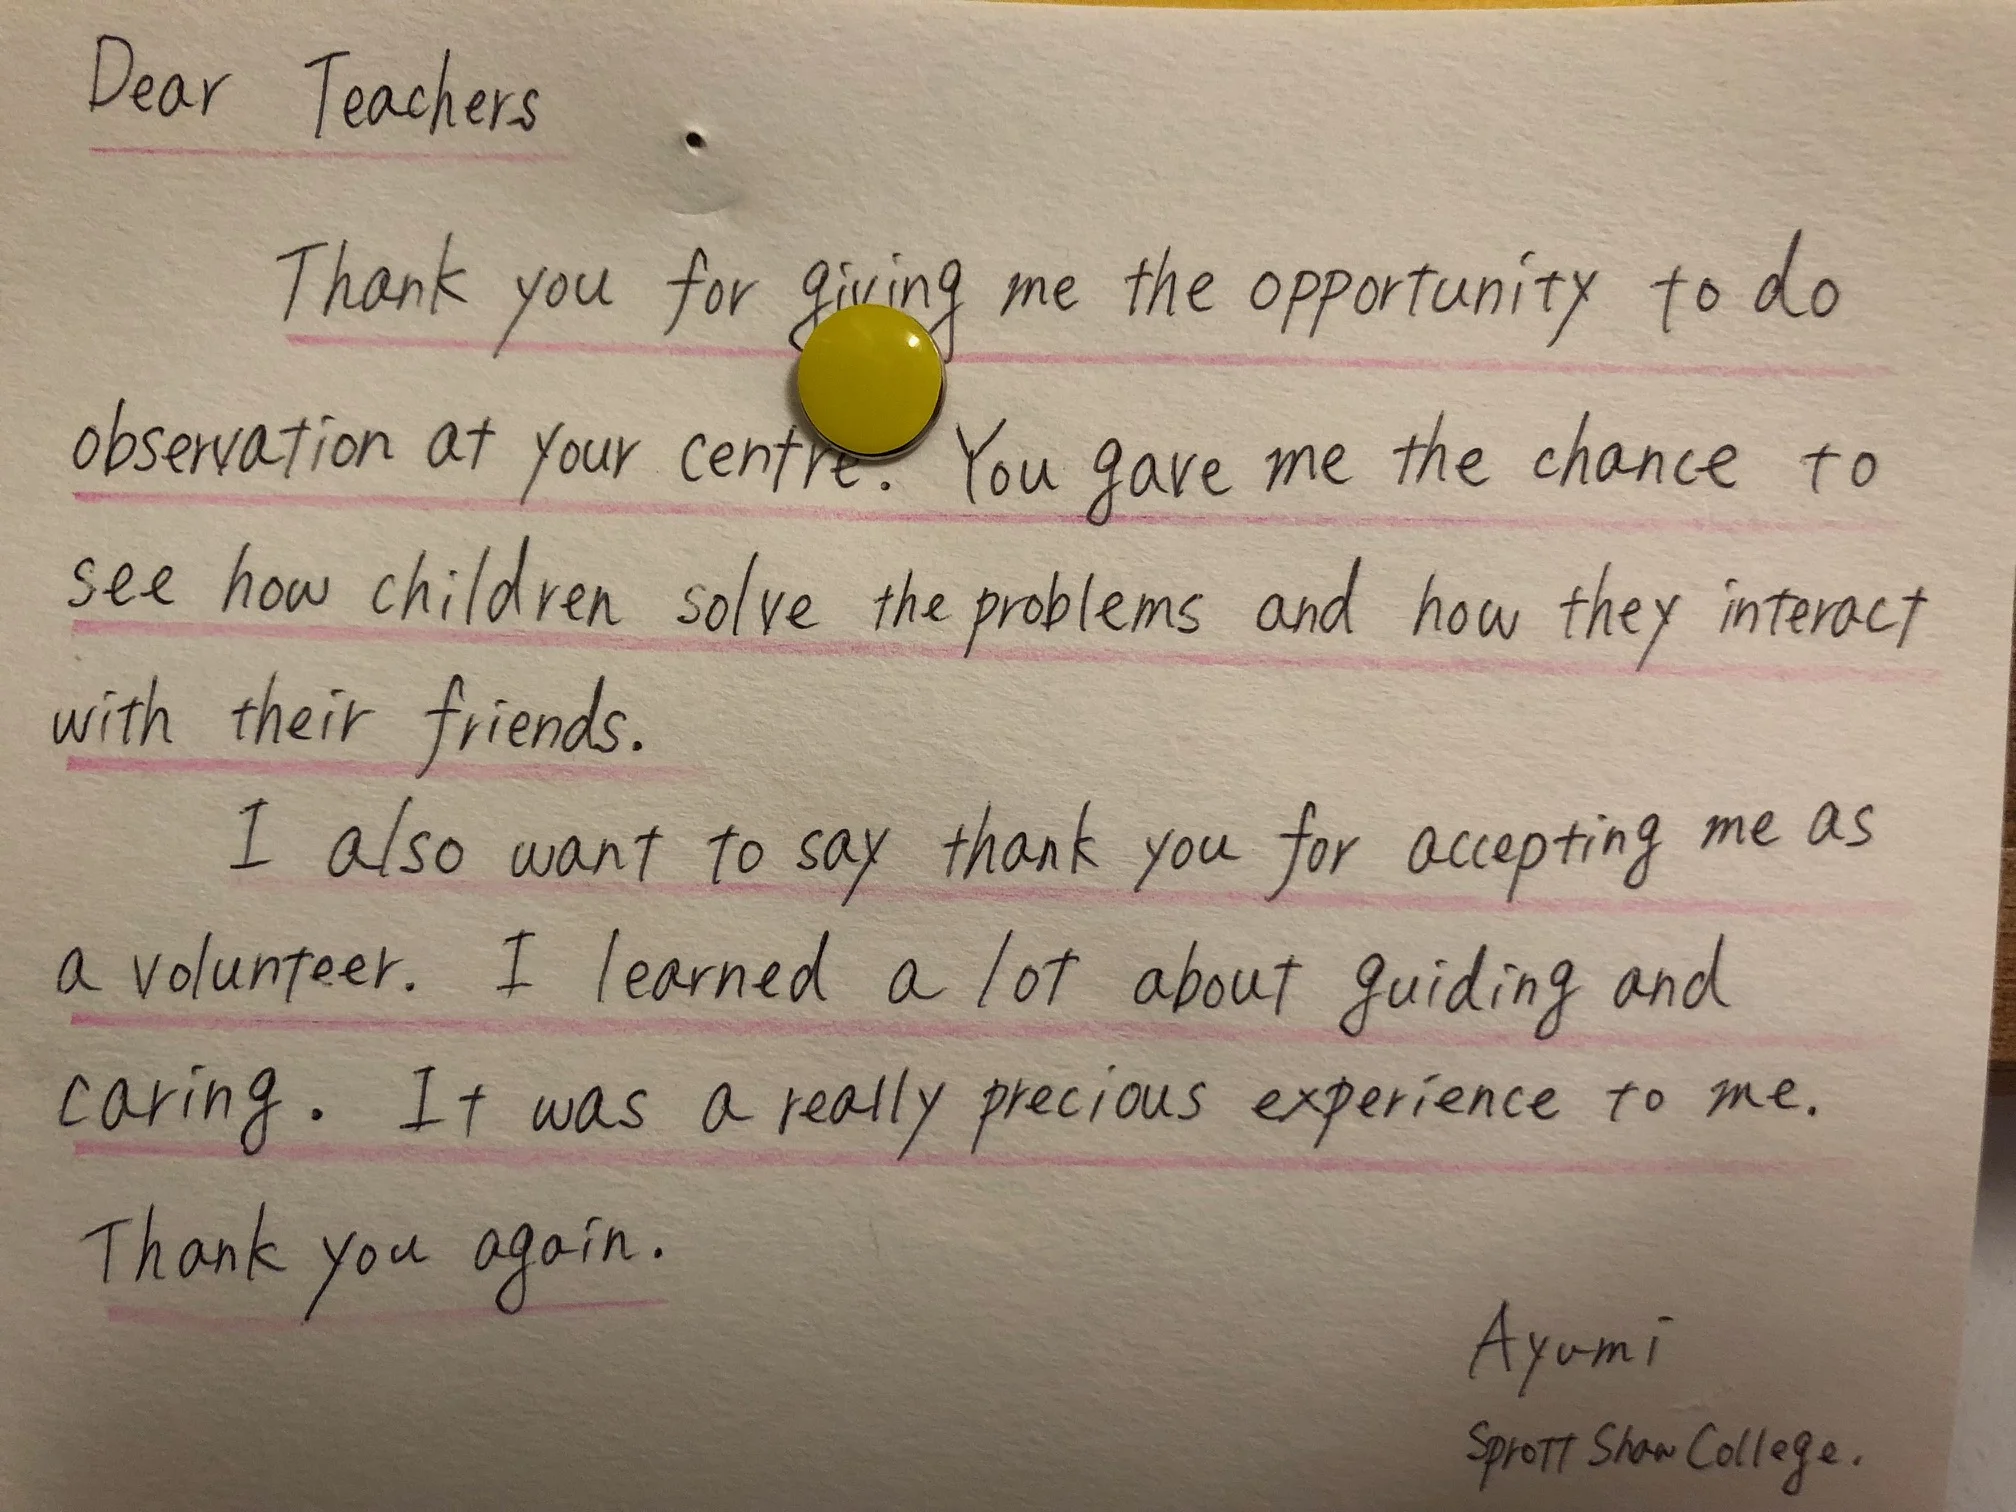 Dear Teachers
Thank you for giving me the opportunity to do
observation at your centre. You gave me the chance to
see how children solve the problems and how they interact
with their friends.
I also want to say thank you for accepting me as
a volunteer. I learned a lot about guiding and
caring. It was a really precious experience to me.
Thank you again.
Ayumi
Sprott Shaw College.